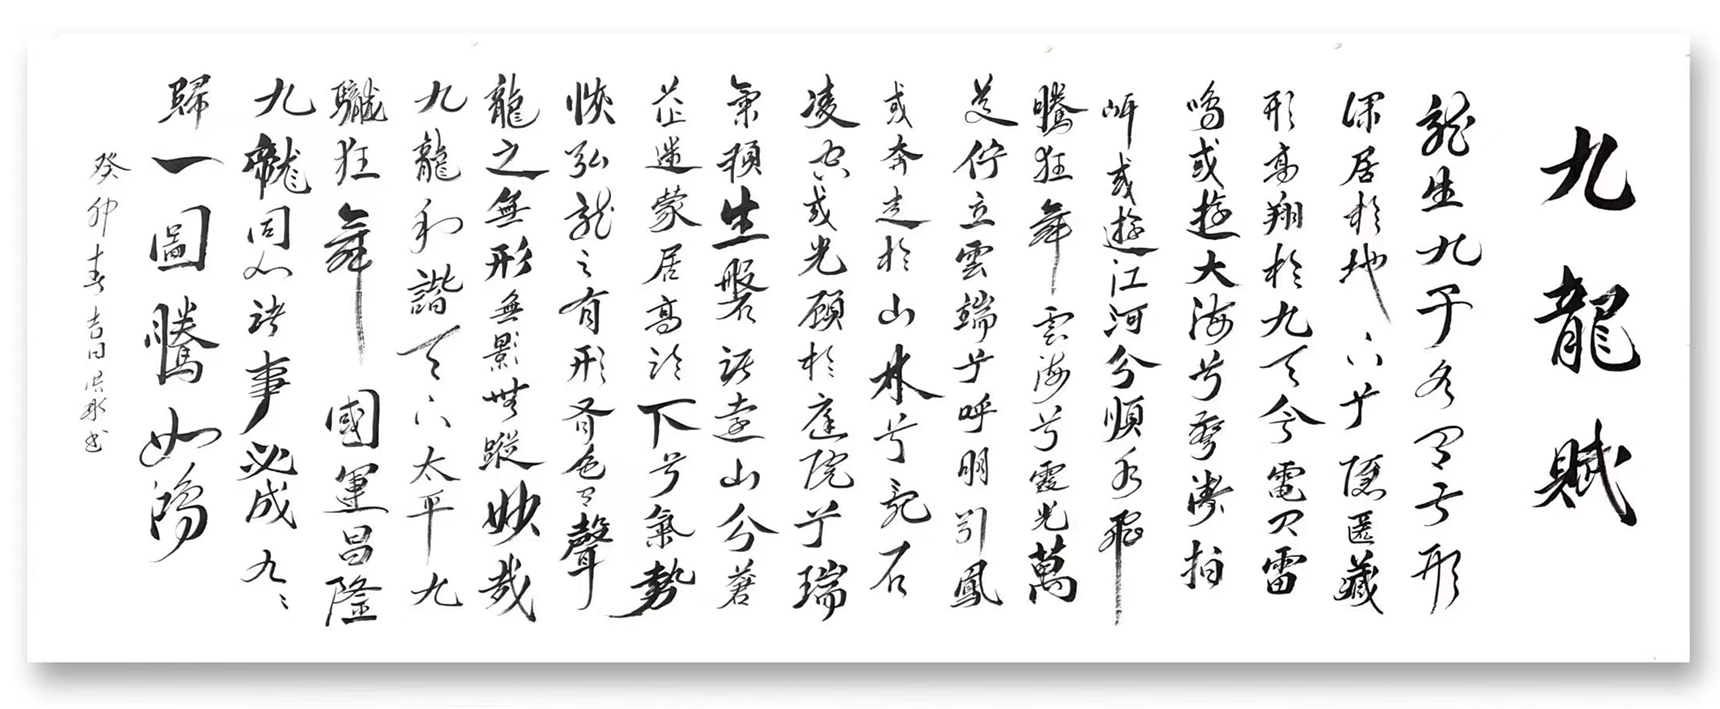 九龍賦
龍生九子各 形
深居於地 兮隱匿藏
形高翔於九天兮電 雷
鳴或遊大海兮驚濤拍
岸或遊江河兮順水飛
騰狂舞雲海兮霞光萬
道佇立雲端兮呼朋引鳳
或奔走於山林兮 石
凌空或光顧於庭院兮瑞
氣頓生盤 遠山兮蒼
茫迷蒙居高 下兮氣勢
恢弘龍之有形有色有聲
龍之無形無影無蹤妙哉
九龍和諧天下太平九
龍狂舞國運昌隆
九龍同心諸事必成九九
歸一圖騰如陽
癸卯春 書